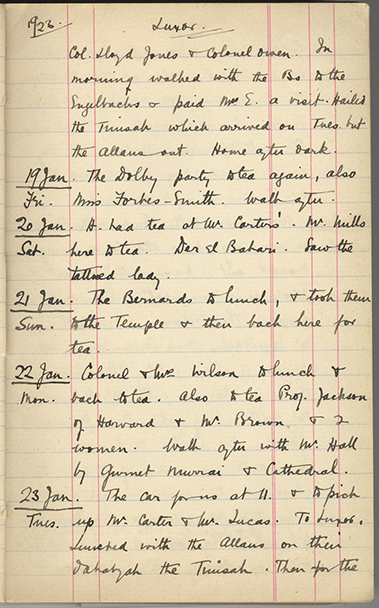 1923 Luxor.
Col. Lloyd Jones & Colonel Owen. In
morning walked with the Bs to the
Engelbachs & paid Mrs E. a visit. Hailed
the Timsah which arrived on Tues. but
the Allans out. Home after dark.
19 Jan. The Dolby party to tea again, also
Fri. Miss Forbes-Smith. Walk after.
20 Jan. H. had tea at Mr. Carter's. Mr. Mills
Sat. here to tea. Der El Bahari. Saw the
tattooed lady.
21 Jan. The Bernards to lunch, & took them
Sun. to the Temple & then back here for
tea.
22 Jan. Colonel & Mrs Wilson to lunch &
Mon. back to tea. Also to tea Prof. Jackson
of Harvard & Mr. Brown, & 2
women. Walk after with Mr. Hall
by Gurnet Murrai & Cathedral.
23 Jan. The car for us at 11. & to pick
Tues. up Mr. Carter & Mr. Lucas. To Luxor.
Lunched with the Allans on their
dahabyah the Timsah. Then for the